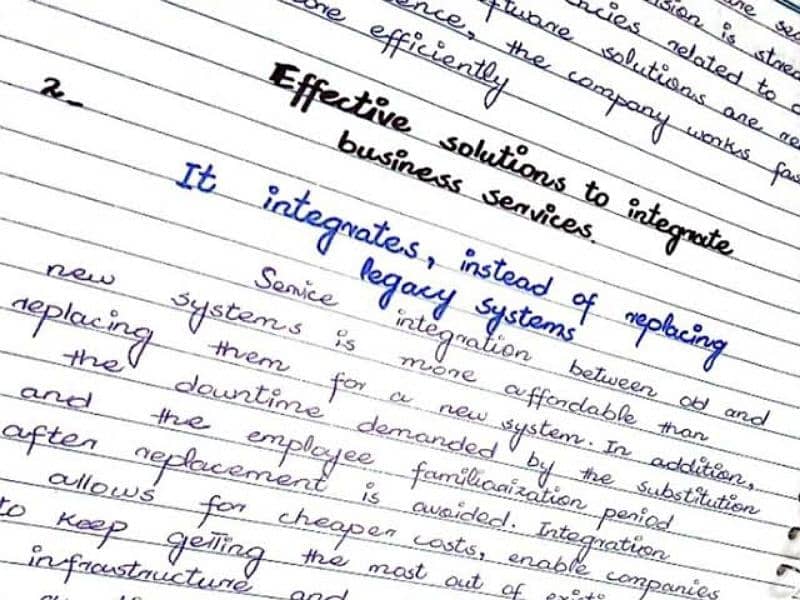 are se
ision is strea
ncies related to c
ftware solutions are re
ence, the company works fas
more efficiently
2_
Effective solutions to integrate
business services.
It integrates, instead of replacing
legacy systems
Service integration between old and
new systems is more affordable than
replacing them for a new system. In addition,
the downtime demanded by the substitution
and the employee familiarization period
after replacement is avoided. Integration
allows for cheaper costs, enable companies
to keep getting the most out of existi
infraustructure and